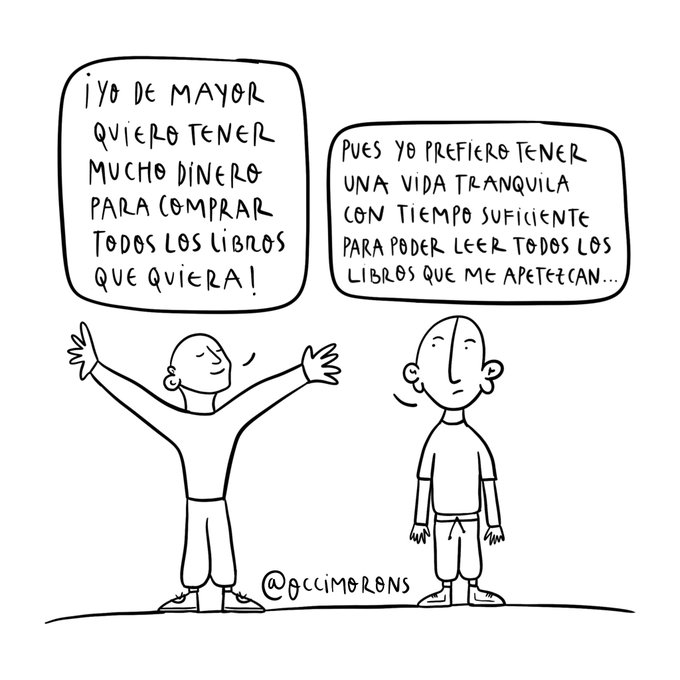 ¡YO DE MAYOR
QUIERO TENER
MUCHO DINERO
PARA COMPRAR
TODOS LOS LIBROS
QUE QUIERA!
PUES YO PREFIERO TENER
UNA VIDA TRANQUILA
CON TIEMPO SUFICIENTE
PARA PODER LEER TODOS LOS
LIBROS QUE ME APETEZCAN...
@OCCIMORONS